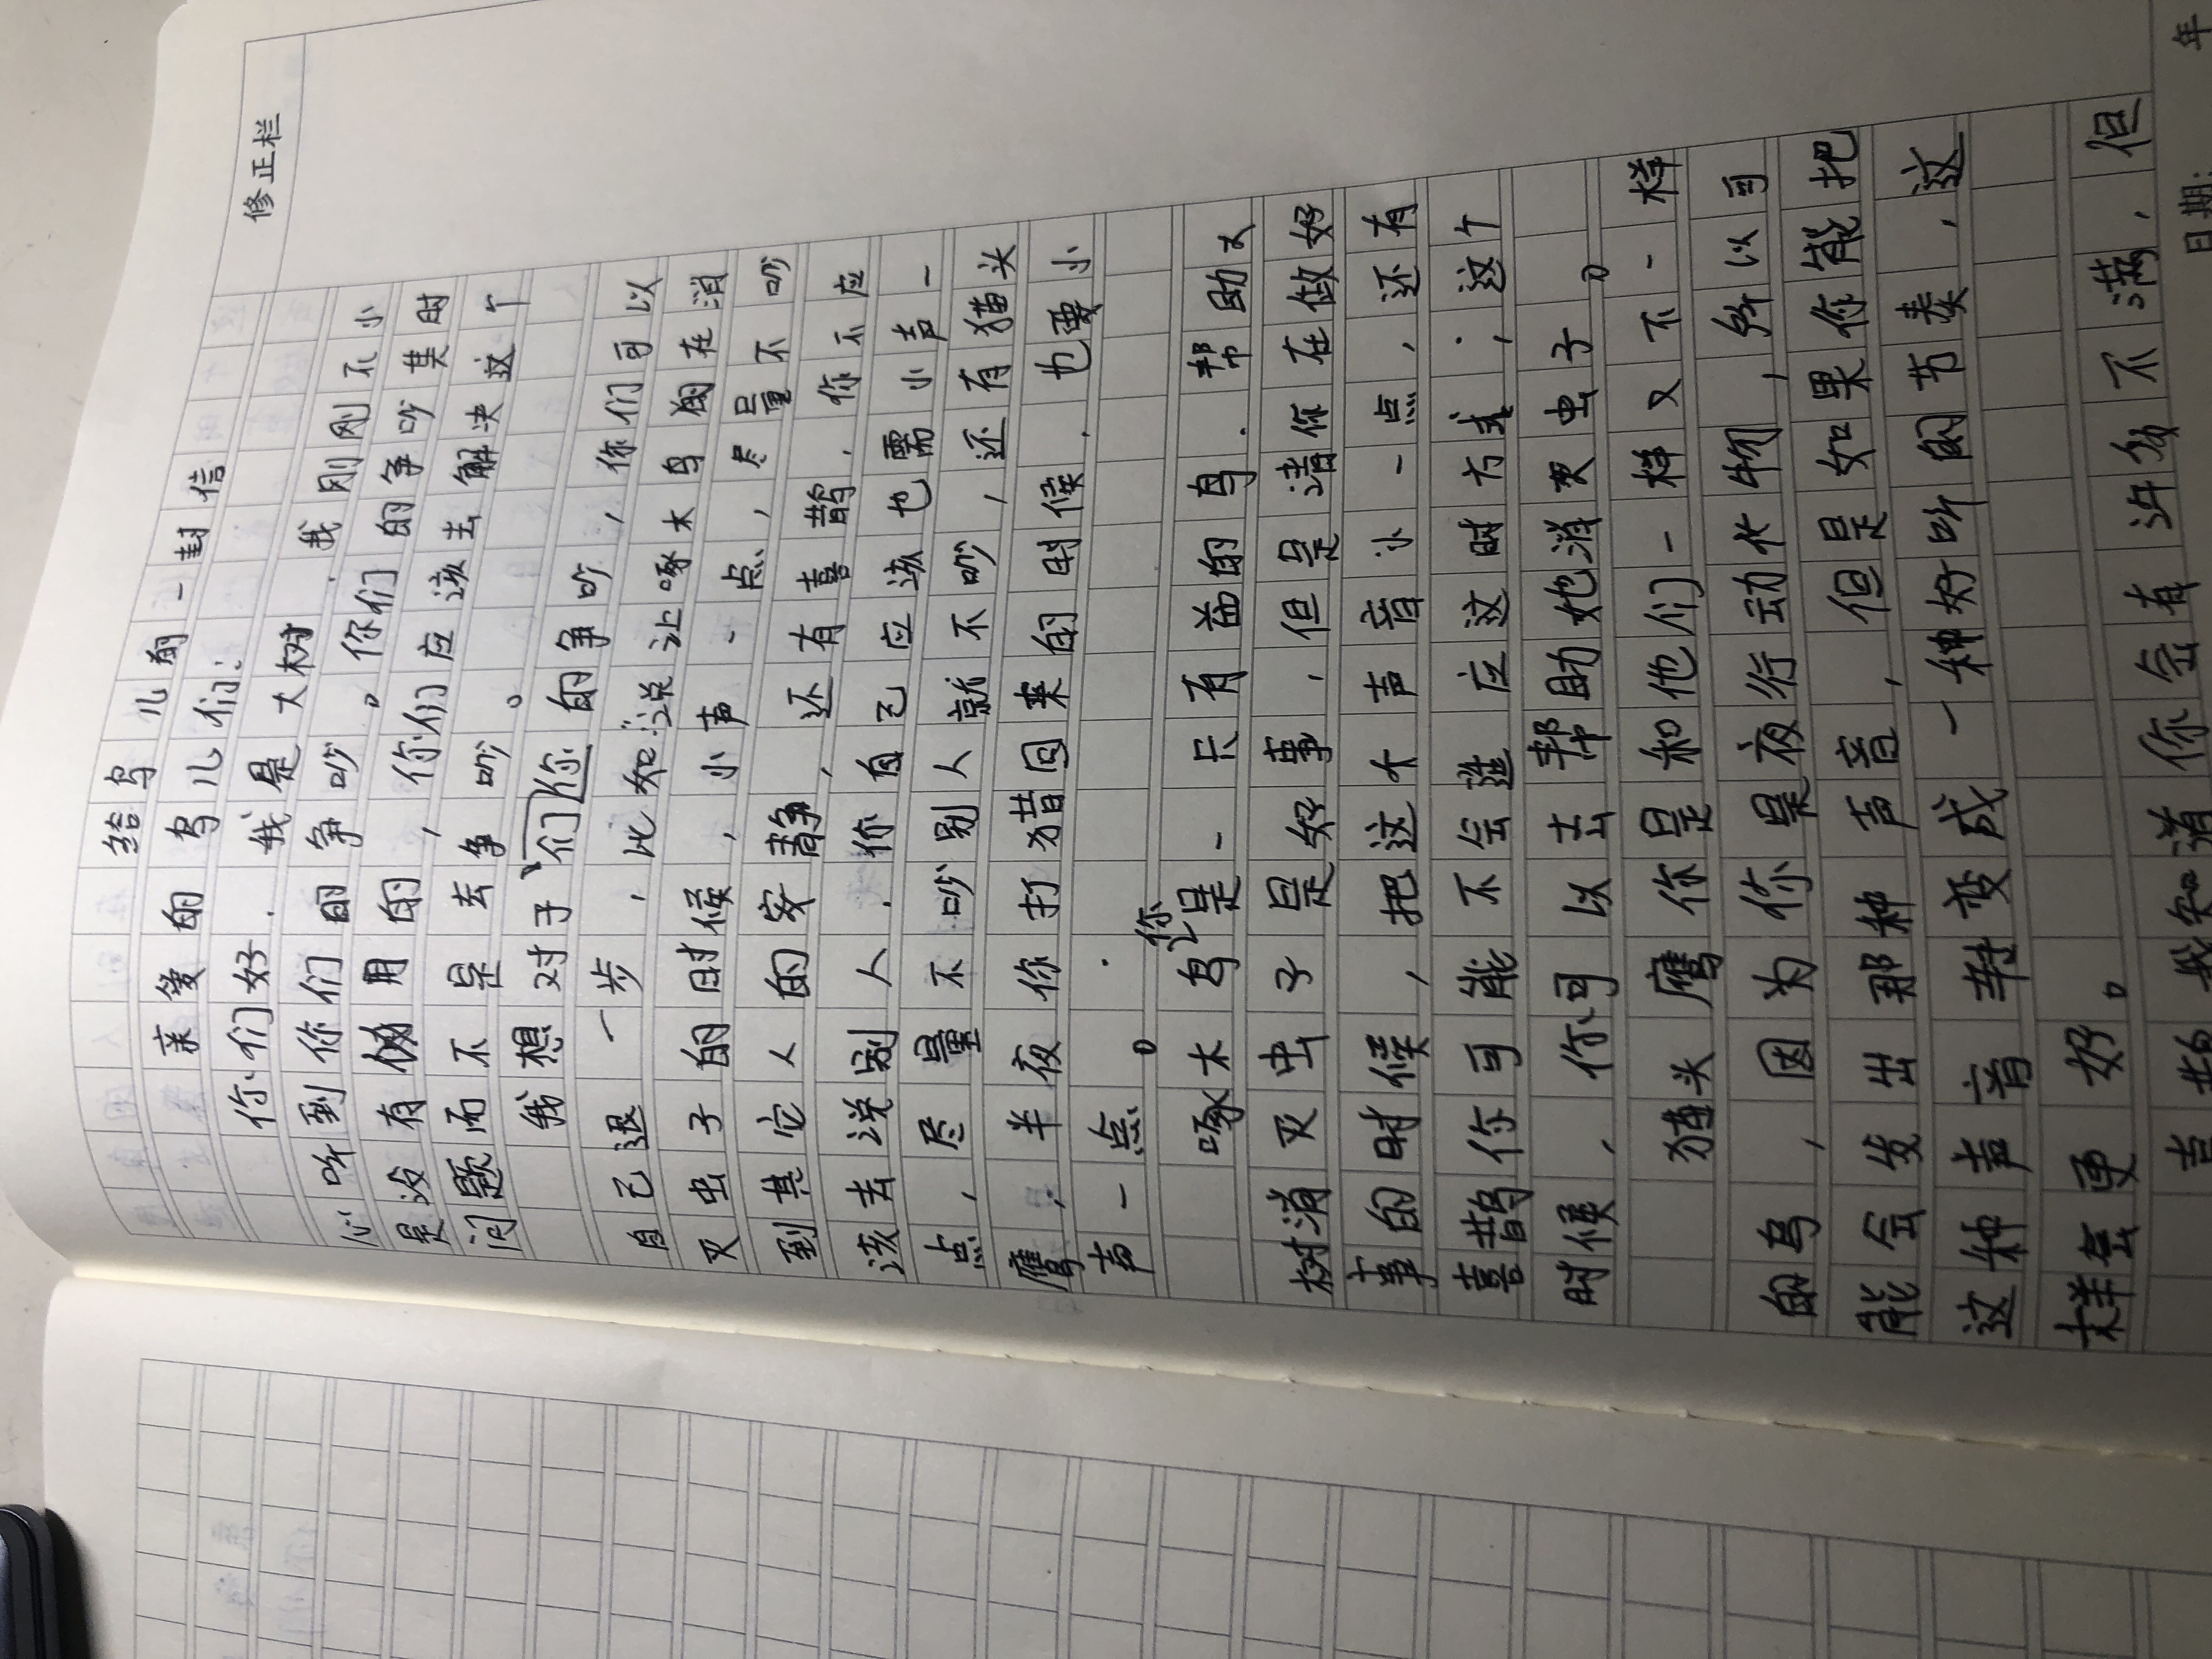 修正栏
给鸟儿的一封信
亲爱的鸟儿们:
你们好.我是大树.我刚刚不小
心听到你们的争吵。你们的争吵其时
是没有做用的,你们应该去解决这个
问题而不是去争吵。
我想对于们你的争吵,你们可以
自己退一步.比如:说让啄木鸟你在消
灭虫子的时候,小声一点,尽量不吵
到其它人的安静,还有喜鹊.你不应
该去说别人.你自己应该也需小声一
点,尽量不吵别人就不吵,还有猫头
鹰.半夜你打猎回来的时候.也要小
声一点。
啄木鸟你是一只有益的鸟.帮助大
树消灭虫子是好事.但是请你在做好
事的时候,把这个声音小一点,还有
喜鹊你可能不会选应这时方式;这个
时候,你可以去帮助她消灭虫子。
猫头鹰你是和他们一样又不一样
的鸟,因为你是夜行动物,所以可
能会发出那种声音,但是如果你能把
这种声音转变成一种好听的节奏,这
样会更好。
吉 我知道你会有许多不满,但
日期:
年